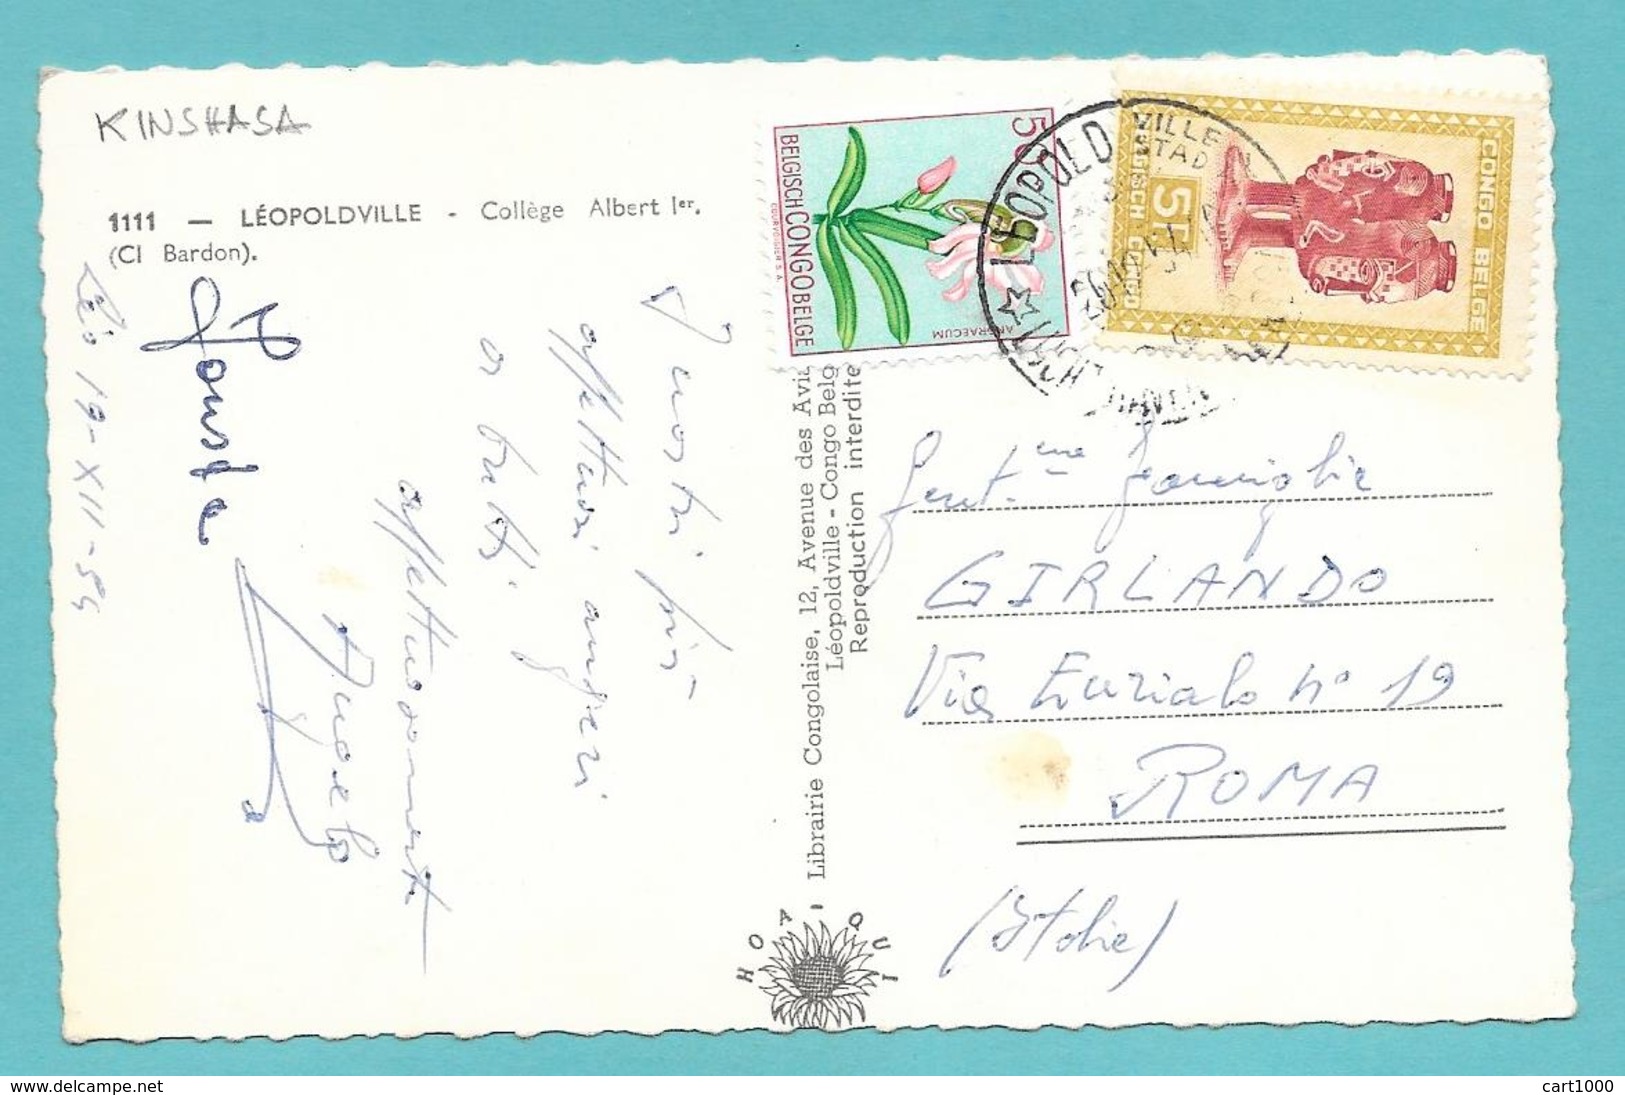 KINSHASA
1111 — LÉOPOLDVILLE - Collège Albert Ier.
(Cl Bardon).
Léo 19-XII-54
I nostri più
affettuosi auguri
a tutti.
affettuosamente
Angelo
BELGISCH CONGO BELGE
COURVOISIER S.A.
ANGRAECUM
LEOPOLDVILLE
CONGO BELGE
BELGISCH CONGO
5F
Librairie Congolaise, 12, Avenue des Avia
Léopoldville - Congo Belg
Reproduction interdite
HOA QUI
Gent.me Famiglia
GIRLANDO
Via Eurialo n° 19
ROMA
(Italia)
www.delcampe.net
cart1000